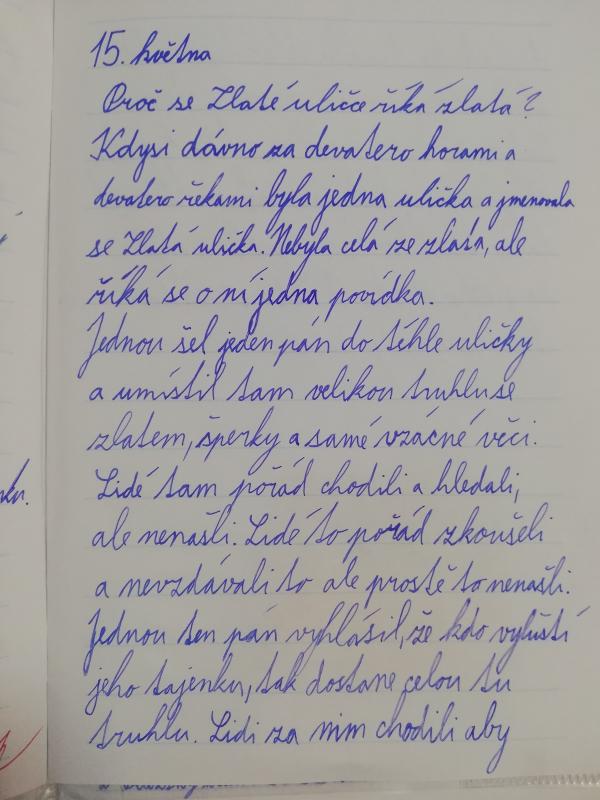 15. května
Proč se Zlaté uličce říká zlatá?
Kdysi dávno za devatero horami a
devatero řekami byla jedna ulička a jmenovala
se Zlatá ulička. Nebyla celá ze zlata, ale
říká se o ní jedna povídka.
Jednou šel jeden pán do téhle uličky
a umístil tam velikou truhlu se
zlatem, šperky a samé vzácné věci.
Lidé tam pořád chodili a hledali,
ale nenašli. Lidé to pořád zkoušeli
a nevzdávali to ale prostě to nenašli.
Jednou ten pán vyhlásil, že kdo vyluští
jeho tajenku, tak dostane celou tu
truhlu. Lidi za nim chodili aby